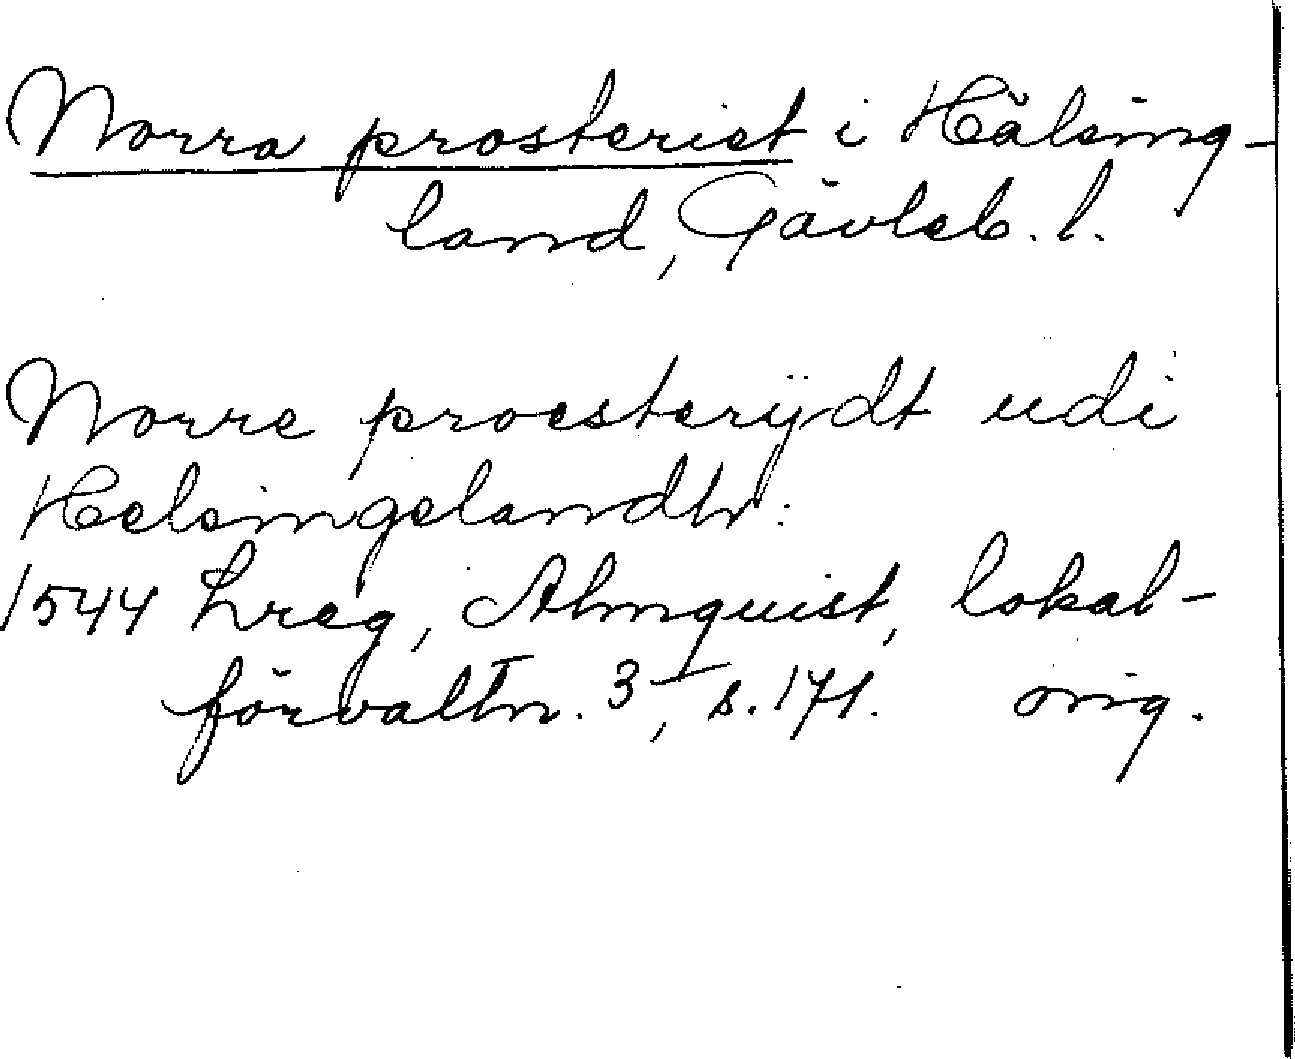 Norra prosteriet i Hälsing-
land, Gävleb. l.
Norre proesterÿdt udi
Helsingelandh:
1544 Lreg, Almquist, lokal-
förvaltn. 3, s. 171. orig.